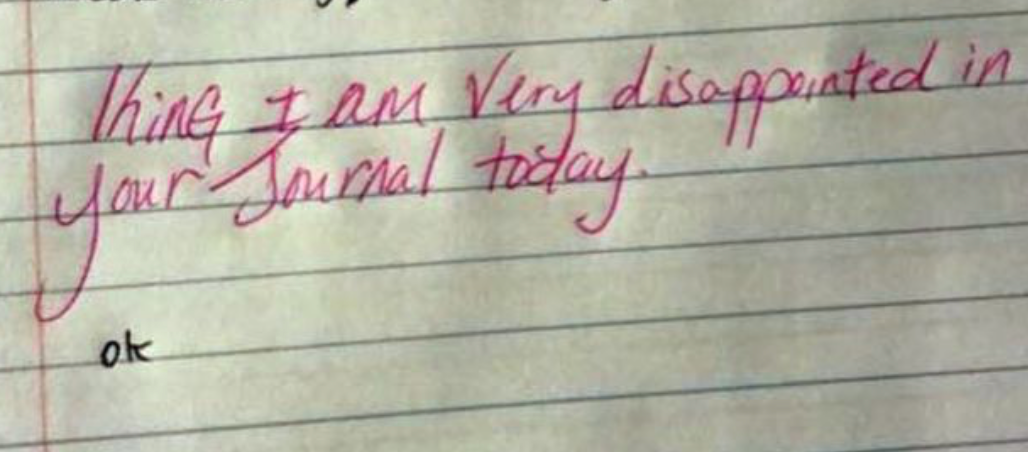 Thing I am Very disappointed in
your Journal today.
ok